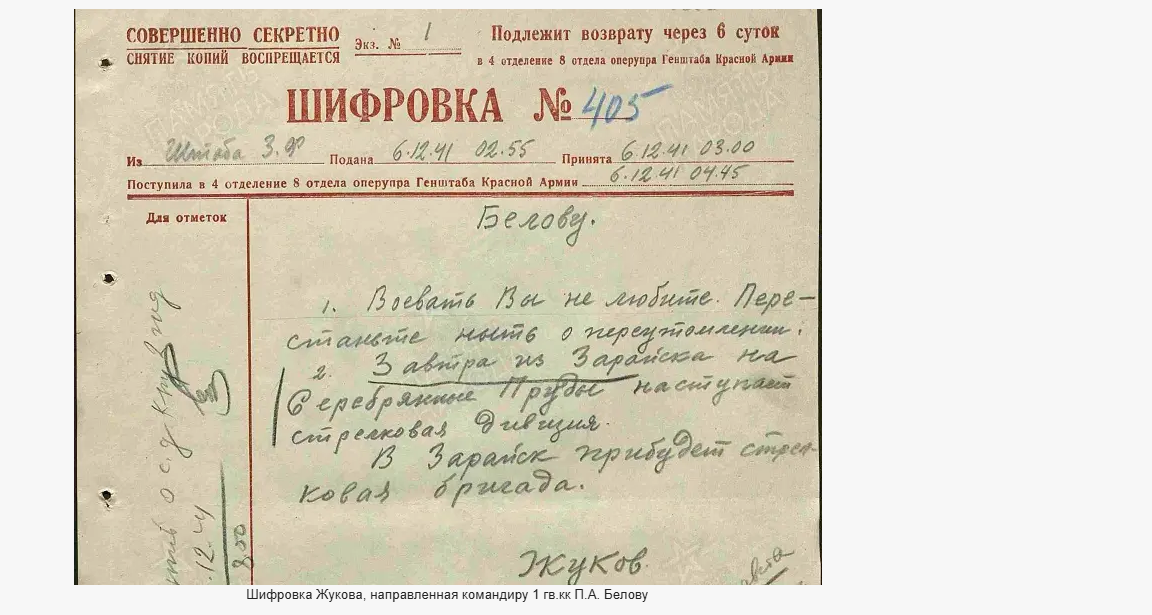 СОВЕРШЕННО СЕКРЕТНО
СНЯТИЕ КОПИЙ ВОСПРЕЩАЕТСЯ
Экз. № 1
Подлежит возврату через 6 суток
в 4 отделение 8 отдела оперупра Генштаба Красной Армии
ШИФРОВКА № 405
Из Штаба З.Ф Подана 6.12.41 02.55 Принята 6.12.41 03.00
Поступила в 4 отделение 8 отдела оперупра Генштаба Красной Армии 6.12.41 04.45
Для отметок
Белову.
1. Воевать Вы не любите. Пере-
станьте ныть о переутомлении.
2. Завтра из Зарайска на
Серебрянные Пруды наступает
стрелковая дивизия.
В Зарайск прибудет стрел-
ковая бригада.
Жуков.
ПАМЯТЬ
НАРОДА
ПАМЯТЬ
НАРОДА
Шифровка Жукова, направленная командиру 1 гв.кк П.А. Белову